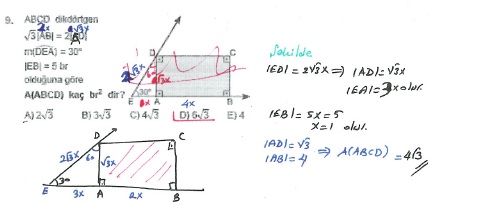 9. ABCD dikdörtgen
√3|AB| = 2|
m(DEA) = 30°
|EB| = 5 br
olduğuna göre
A(ABCD) kaç br² dir?
A) 2√3 B) 3√3 C) 4√3 D) 6√3 E) 4
D C
2√3x 60
30°
E A 4x B
D C
2√3x 60 √3x
E 3x A 2x B
Şekilde
|ED| = 2√3x ⇒ |AD| = √3x
|EA| = 3x olur.
|EB| = 5x = 5
x = 1 olur.
|AD| = √3
|AB| = 4 ⇒ A(ABCD) = 4√3